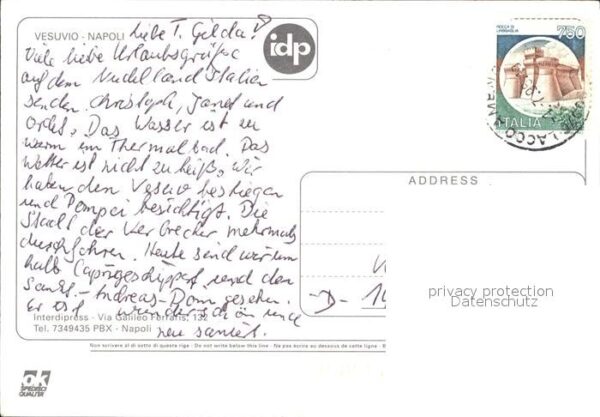 VESUVIO - NAPOLI
idp
Liebe T. Gilda!
Viele liebe Urlaubsgrüße
auf dem Nudelland Italien
senden Christoph, Janet und
Das Wasser ist zu
warm im Thermalbad. Das
Wetter ist nicht zu heiß, wir
haben den Vesuv bestiegen
und Pompei besichtigt. Die
Stadt der Verbrecher mehrmals
durchfahren. Heute sind wir um
halb Capri geschippert und den
Sankt-Andreas-Dom gesehen.
Er ist wunderschön und
neu saniert.
Interdipress - Via Galileo Ferraris, 132
Tel. 7349435 PBX - Napoli
Non scrivere al di sotto di questa riga - Do not write below this line - Ne pas écrire au dessous de cette ligne - B
ok
SPEDISCI
QUALITA'
ROCCA DI
URBISAGLIA
750
ITALIA
ADDRESS
D-
privacy protection
Datenschutz